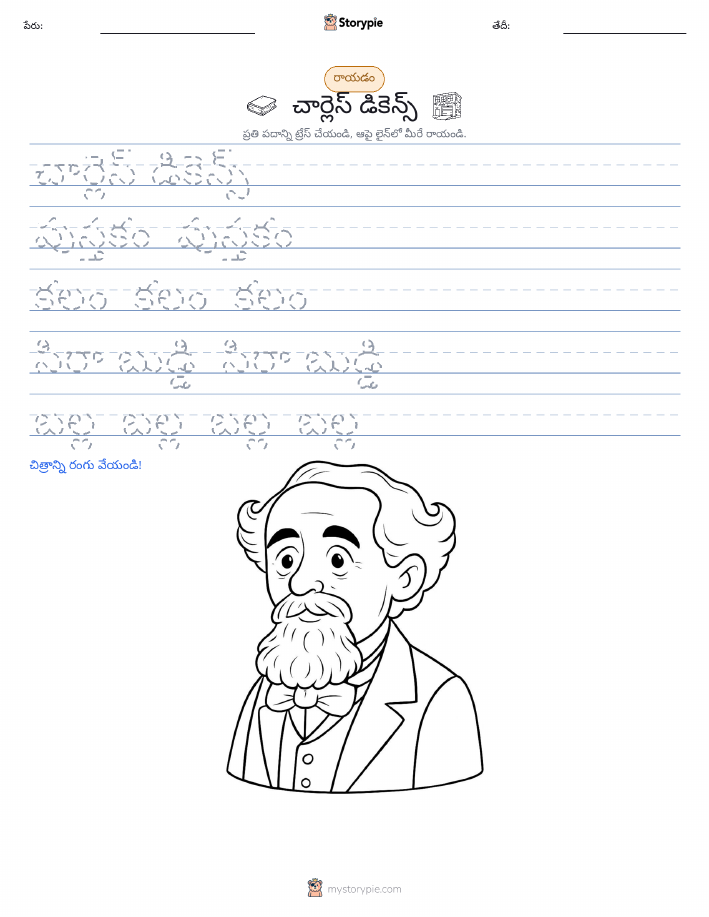 పేరు: Storypie తేదీ:
రాయడం
చార్లెస్ డికెన్స్
ప్రతి పదాన్ని ట్రేస్ చేయండి, ఆపై లైన్‌లో మీరే రాయండి.
చార్లెస్ డికెన్స్
పుస్తకం పుస్తకం
కలం కలం కలం
సిరా బుడ్డి సిరా బుడ్డి
బల్ల బల్ల బల్ల బల్ల
చిత్రాన్ని రంగు వేయండి!
mystorypie.com